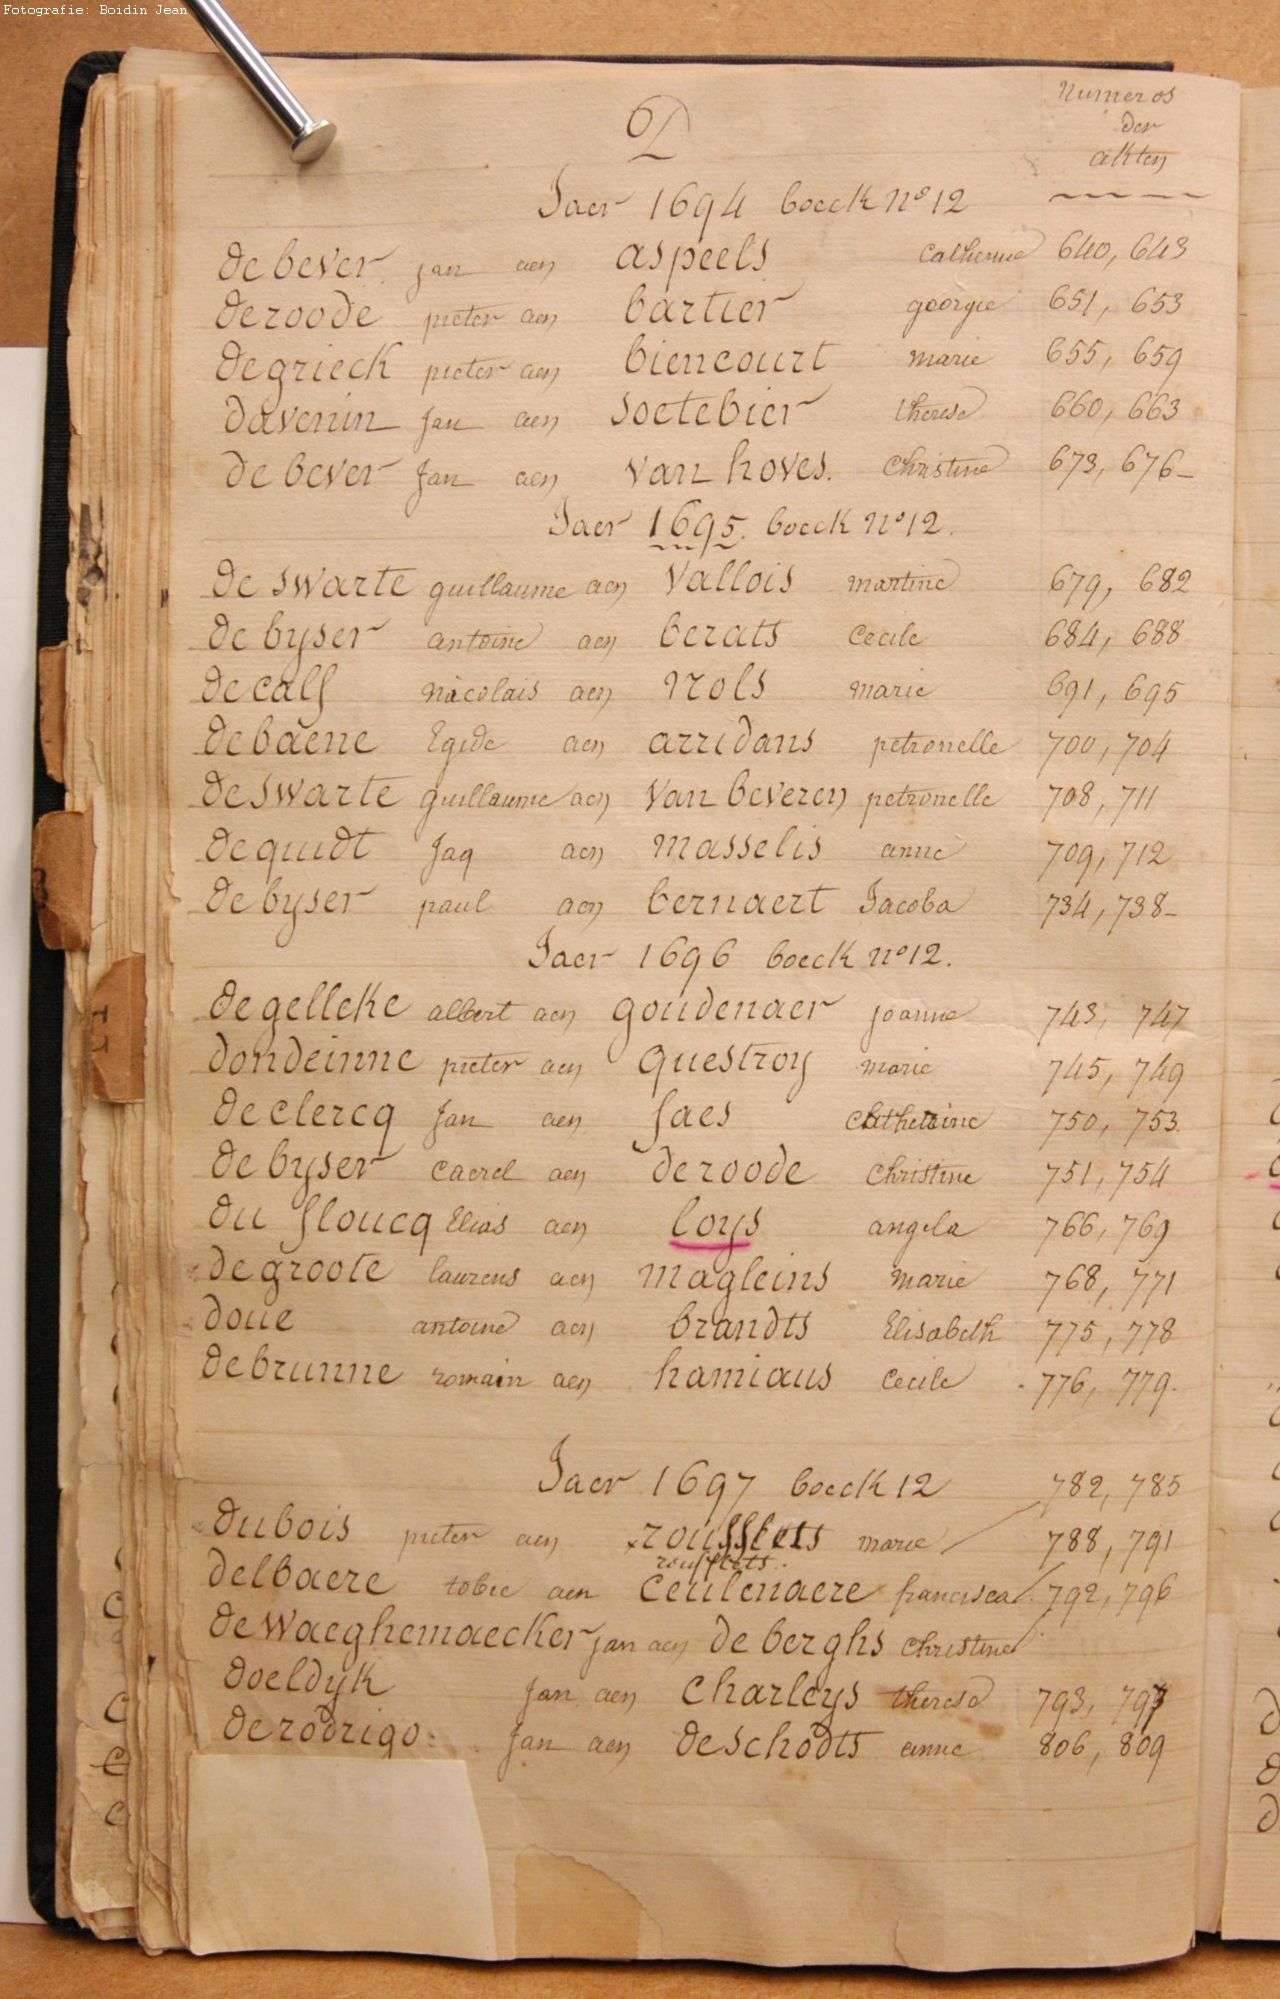 Fotografie: Boidin Jean
6
D
Numeros
der
akten
Jaer 1694 boeck N° 12
de bever jan aen aspeels catherine 640, 643
de roode pieter aen bartier georgie 651, 653
de grieck pieter aen biencourt marie 655, 659
davenin Jan aen soetebier therese 660, 663
de bever Jan aen van hoves. christine 673, 676_
Jaer 1695. boeck N° 12.
de swarte guillaume aen vallois martine 679, 682
de byser antoine aen berats cecile 684, 688
de calf nicolais aen nols marie 691, 695
de baene Egide aen arridans petronelle 700, 704
de swarte guillaume aen van beveren petronelle 708, 711
de quidt Jaq aen masselis anne 709, 712
de byser paul aen bernaert Jacoba 734, 738_
Jaer 1696 boeck N° 12.
de gelleke albert aen goudenaer joanne 743, 747
dondeinne pieter aen questroy marie 745, 749
de clercq Jan aen faes catheraine 750, 753
de byser caerel aen de roode christine 751, 754
du floucq Elias aen loys angela 766, 769
de groote laurens aen magleins marie 768, 771
doue antoine aen brandts Elisabeth 775, 778
de brunne romain aen hamiaus cecile 776, 779.
Jaer 1697 boeck 12 782, 785
dubois pieter aen rousslets marie 788, 791
roufflets.
delbaere tobie aen ceulenaere francisca 792, 796
de waeghemaecker jan aen de berghs christine
doeldyk Jan aen charleys therese 793, 797
de rodrigo: Jan aen de schodts anne 806, 809